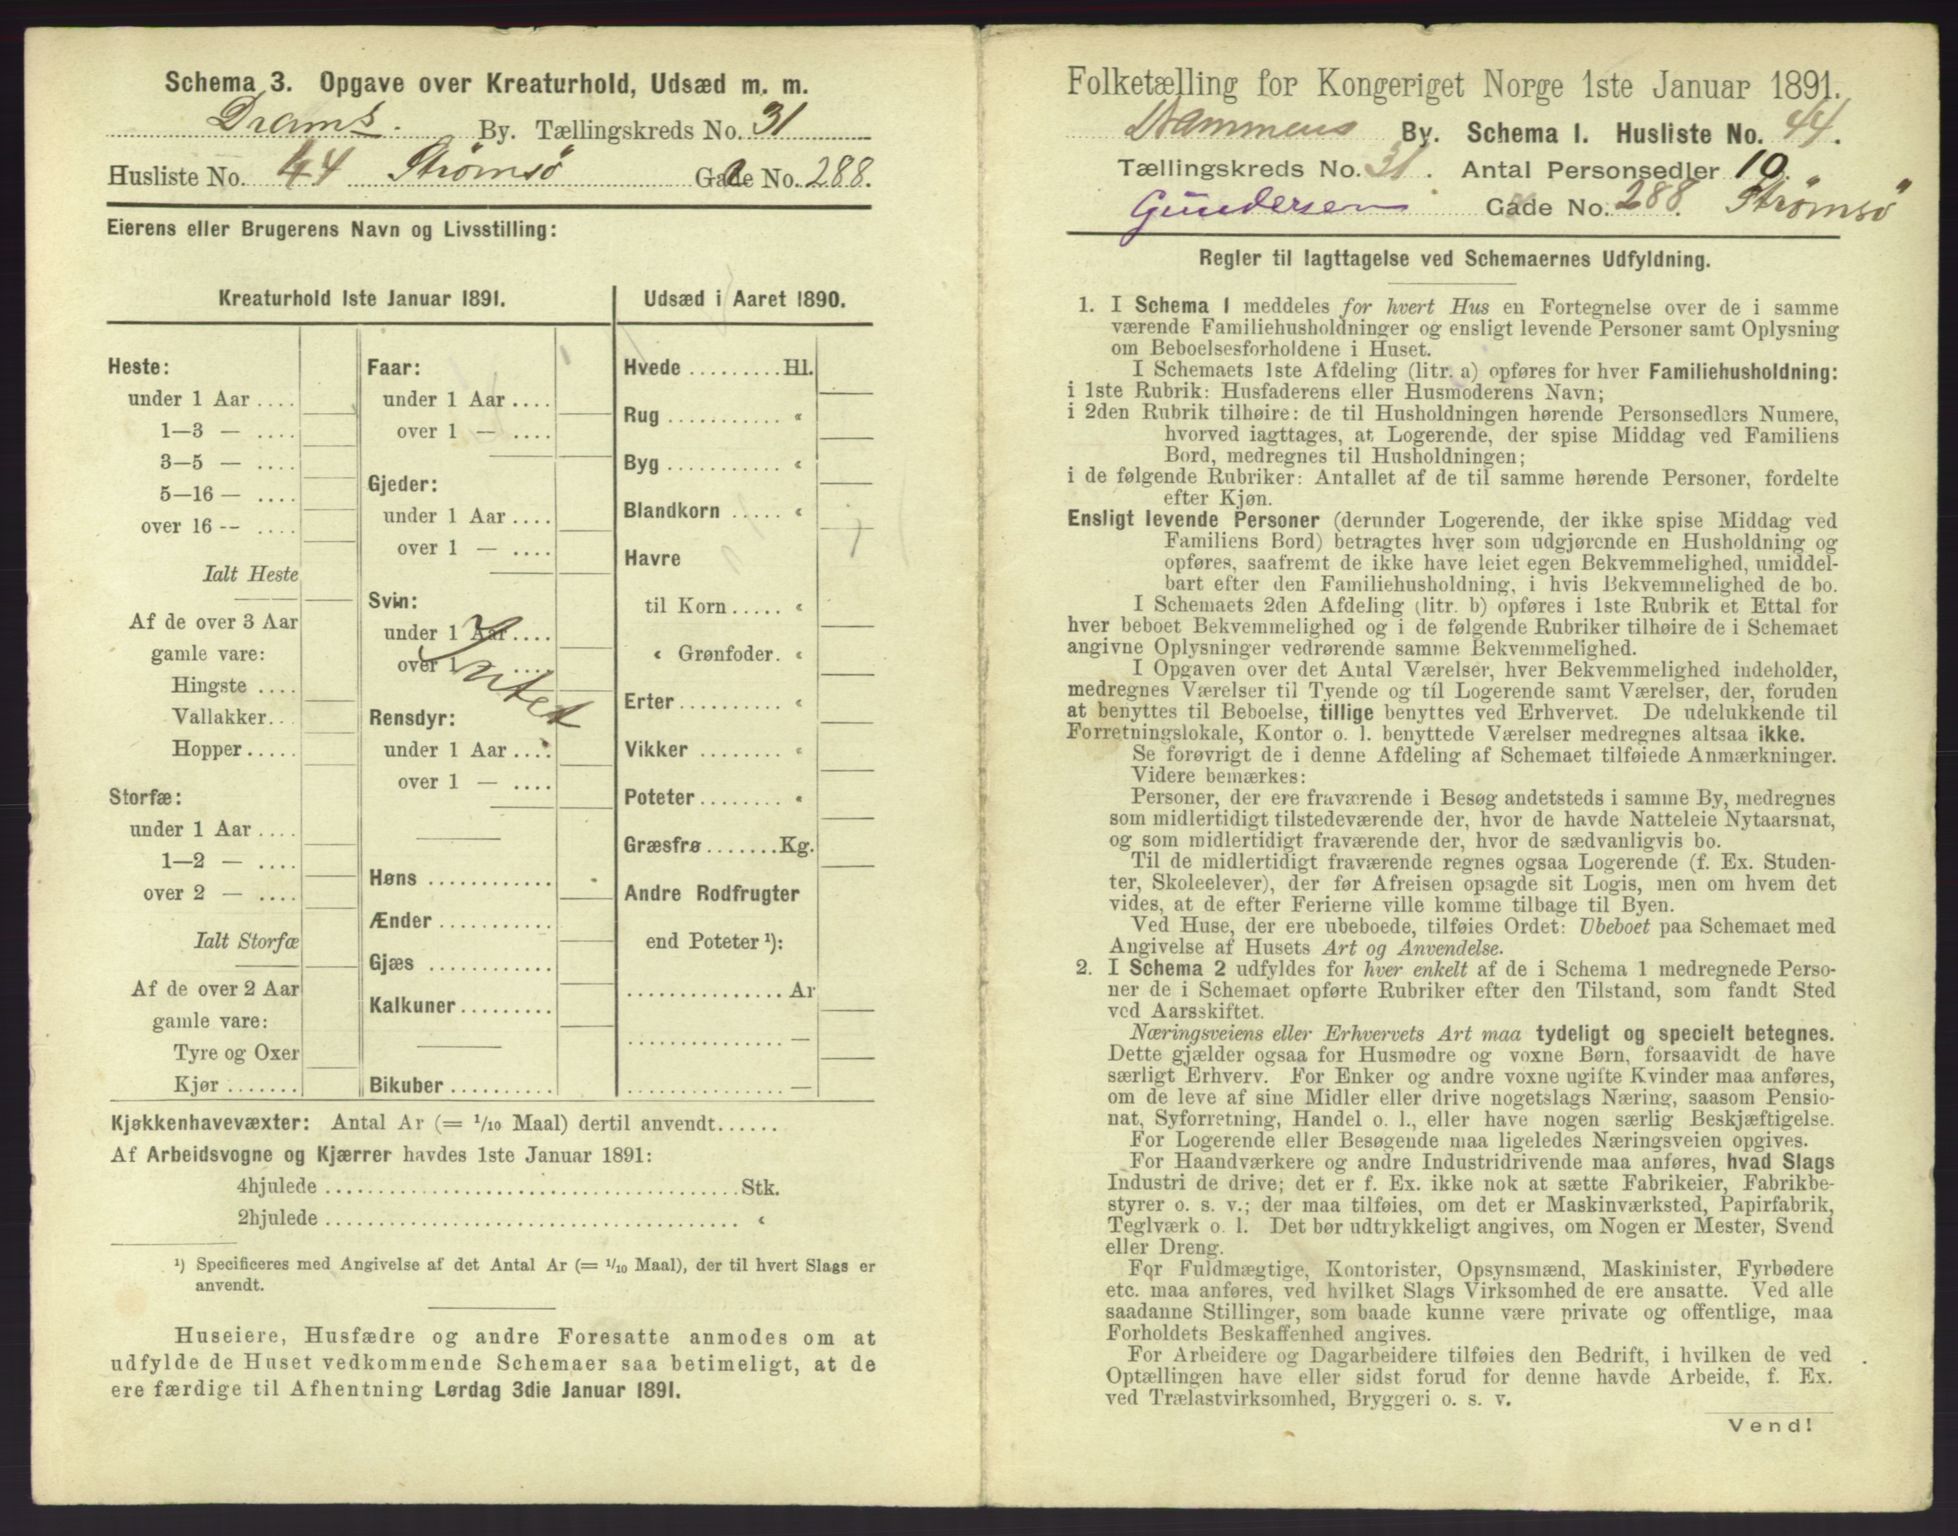 Schema 3. Opgave over Kreaturhold, Udsæd m. m.
Drams. By. Tællingskreds No. 31
Husliste No. 44 Strømsø Gade No. 288.
Eierens eller Brugerens Navn og Livsstilling:
Kreaturhold 1ste Januar 1891.
Heste:
under 1 Aar ....
1—3 — ....
3—5 — ....
5—16 — ....
over 16 -- ....
Ialt Heste
Af de over 3 Aar
gamle vare:
Hingste ....
Vallakker...
Hopper.....
Storfæ:
under 1 Aar ....
1—2 — ....
over 2 — ....
Ialt Storfæ
Af de over 2 Aar
gamle vare:
Tyre og Oxer
Kjør .......
Faar:
under 1 Aar ....
over 1 — ....
Gjeder:
under 1 Aar ....
over 1 — ....
Svin:
under 1 Aar ....
over 1 ....
Intet
Rensdyr:
under 1 Aar ....
over 1 — ....
Høns ............
Ænder ...........
Gjæs ............
Kalkuner.........
Bikuber ..........
Udsæd i Aaret 1890.
Hvede .........Hl.
Rug ........... «
Byg ........... «
Blandkorn ..... «
Havre
til Korn..... «
« Grønfoder. «
Erter.......... «
Vikker ........ «
Poteter........ «
Græsfrø .......Kg.
Andre Rodfrugter
end Poteter ¹):
............... Ar
............... —
............... —
Kjøkkenhavevæxter: Antal Ar (= 1/10 Maal) dertil anvendt......
Af Arbeidsvogne og Kjærrer havdes 1ste Januar 1891:
4hjulede ........................................Stk.
2hjulede ........................................ «
¹) Specificeres med Angivelse af det Antal Ar (= 1/10 Maal), der til hvert Slags er
anvendt.
Huseiere, Husfædre og andre Foresatte anmodes om at
udfylde de Huset vedkommende Schemaer saa betimeligt, at de
ere færdige til Afhentning Lørdag 3die Januar 1891.
Folketælling for Kongeriget Norge 1ste Januar 1891.
Drammens By. Schema I. Husliste No. 44.
Tællingskreds No. 31. Antal Personsedler 10.
Gundersen Gade No. 288. Strømsø
Regler til Iagttagelse ved Schemaernes Udfyldning.
1. I Schema I meddeles for hvert Hus en Fortegnelse over de i samme
værende Familiehusholdninger og ensligt levende Personer samt Oplysning
om Beboelsesforholdene i Huset.
I Schemaets 1ste Afdeling (litr. a) opføres for hver Familiehusholdning:
i 1ste Rubrik: Husfaderens eller Husmoderens Navn;
i 2den Rubrik tilhøire: de til Husholdningen hørende Personsedlers Numere,
hvorved iagttages, at Logerende, der spise Middag ved Familiens
Bord, medregnes til Husholdningen;
i de følgende Rubriker: Antallet af de til samme hørende Personer, fordelte
efter Kjøn.
Ensligt levende Personer (derunder Logerende, der ikke spise Middag ved
Familiens Bord) betragtes hver som udgjørende en Husholdning og
opføres, saafremt de ikke have leiet egen Bekvemmelighed, umiddel-
bart efter den Familiehusholdning, i hvis Bekvemmelighed de bo.
I Schemaets 2den Afdeling (litr. b) opføres i 1ste Rubrik et Ettal for
hver beboet Bekvemmelighed og i de følgende Rubriker tilhøire de i Schemaet
angivne Oplysninger vedrørende samme Bekvemmelighed.
I Opgaven over det Antal Værelser, hver Bekvemmelighed indeholder,
medregnes Værelser til Tyende og til Logerende samt Værelser, der, foruden
at benyttes til Beboelse, tillige benyttes ved Erhvervet. De udelukkende til
Forretningslokale, Kontor o. l. benyttede Værelser medregnes altsaa ikke.
Se forøvrigt de i denne Afdeling af Schemaet tilføiede Anmærkninger.
Videre bemærkes:
Personer, der ere fraværende i Besøg andetsteds i samme By, medregnes
som midlertidigt tilstedeværende der, hvor de havde Natteleie Nytaarsnat,
og som midlertidigt fraværende der, hvor de sædvanligvis bo.
Til de midlertidigt fraværende regnes ogsaa Logerende (f. Ex. Studen-
ter, Skoleelever), der før Afreisen opsagde sit Logis, men om hvem det
vides, at de efter Ferierne ville komme tilbage til Byen.
Ved Huse, der ere ubeboede, tilføies Ordet: Ubeboet paa Schemaet med
Angivelse af Husets Art og Anvendelse.
2. I Schema 2 udfyldes for hver enkelt af de i Schema 1 medregnede Perso-
ner de i Schemaet opførte Rubriker efter den Tilstand, som fandt Sted
ved Aarsskiftet.
Næringsveiens eller Erhvervets Art maa tydeligt og specielt betegnes.
Dette gjælder ogsaa for Husmødre og voxne Børn, forsaavidt de have
særligt Erhverv. For Enker og andre voxne ugifte Kvinder maa anføres,
om de leve af sine Midler eller drive nogetslags Næring, saasom Pensio-
nat, Syforretning, Handel o. l., eller have nogen særlig Beskjæftigelse.
For Logerende eller Besøgende maa ligeledes Næringsveien opgives.
For Haandværkere og andre Industridrivende maa anføres, hvad Slags
Industri de drive; det er f. Ex. ikke nok at sætte Fabrikeier, Fabrikbe-
styrer o. s. v.; der maa tilføies, om det er Maskinværksted, Papirfabrik,
Teglværk o. l. Det bør udtrykkeligt angives, om Nogen er Mester, Svend
eller Dreng.
For Fuldmægtige, Kontorister, Opsynsmænd, Maskinister, Fyrbødere
etc. maa anføres, ved hvilket Slags Virksomhed de ere ansatte. Ved alle
saadanne Stillinger, som baade kunne være private og offentlige, maa
Forholdets Beskaffenhed angives.
For Arbeidere og Dagarbeidere tilføies den Bedrift, i hvilken de ved
Optællingen have eller sidst forud for denne havde Arbeide, f. Ex.
ved Trælastvirksomhed, Bryggeri o. s. v.
Vend!